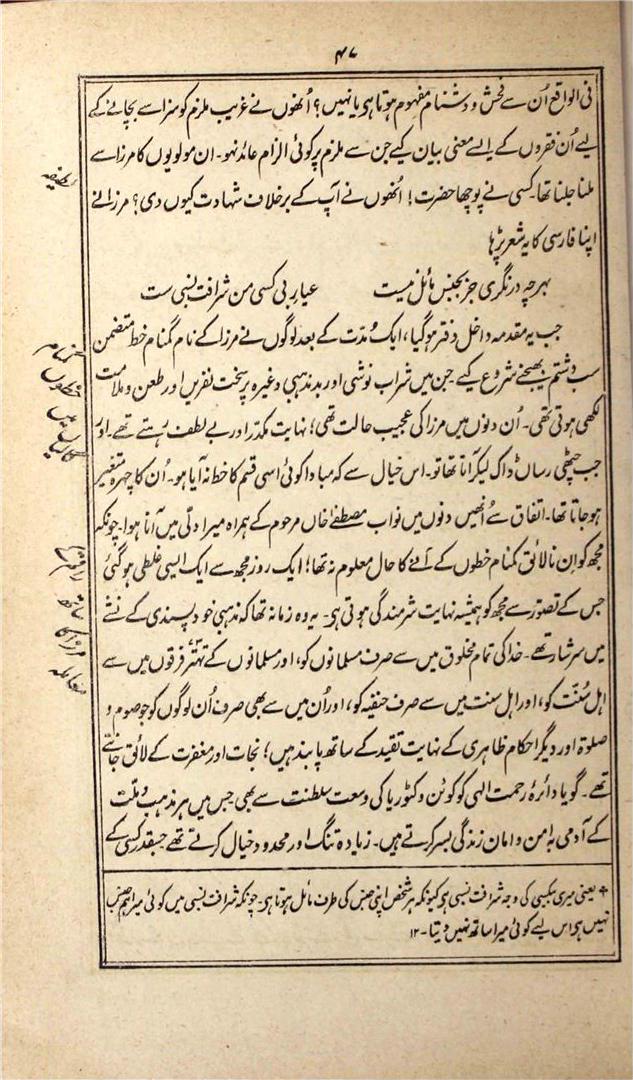 ۴۷
فی الواقع اُن سے فحش و دشنام مفہوم ہوتا ہی یا نہیں؟ اُنھوں نے غریب ملزم کو سزا سے بچانے کے
لیے اُن فقروں کے ایسے معنی بیان کیے جن سے ملزم پر کوئی الزام عائد نہو۔ ان مولویوں کا مرزا سے
ملنا جلنا تھا۔ کسی نے پوچھا حضرت! اُنھوں نے آپ کے برخلاف شہادت کیوں دی؟ مرزا نے
لطیفہ
اپنا فارسی کا یہ شعر پڑہا
بہرچہ درنگری جز بجنس مائل نیست عیار بی کسی من شرافت نسبی ست
جب یہ مقدمہ داخل دفتر ہوگیا، ایک مُدّت کے بعد لوگوں نے مرزا کے نام گمنام خط متضمن
سب و شتم بھیجنے شروع کیے۔ جن میں شراب نوشی اور بدمذہبی وغیرہ پر سخت نفریں اور طعن و ملامت
گمنام خطوں میں گالیاں
لکھی ہوتی تھی۔ اُن دنوں میں مرزا کی عجیب حالت تھی؛ نہایت مکدّر اور بے لطف رہتے تھے۔ اور
جب چٹھی رساں ڈاک لیکر آتا تھا تو۔ اس خیال سے کہ مبادا کوئی اسی قسم کا خط نہ آیا ہو۔ اُن کا چہرہ متغیر
ہوجاتا تھا۔ اتفاق سے اُنھیں دنوں میں نواب مصطفےٰ خاں مرحوم کے ہمراہ میرا دلّی میں آنا ہوا۔ چونکہ
مجھ کو ان نالائق گمنام خطوں کے آنے کا حال معلوم نہ تھا؛ ایک روز مجھ سے ایک ایسی غلطی ہوگئی
جس کے تصوّر سے مجھ کو ہمیشہ نہایت شرمندگی ہوتی ہی۔ یہ وہ زمانہ تھا کہ مذہبی خود پسندی کے نشے
میں سرشار تھے۔ خدا کی تمام مخلوق میں سے صرف مسلمانوں کو، اور مسلمانوں کے تہتّر فرقوں میں سے
اہل سُنّت کو، اور اہل سنت میں سے صرف حنفیہ کو، اور اُن میں سے بھی صرف اُن لوگوں کو جو صوم و
صلوٰۃ اور دیگر احکام ظاہری کے نہایت تقید کے ساتھ پابند ہیں؛ نجات اور مغفرت کے لائق جانتے
تھے۔ گویا دائرۂ رحمت الٰہی کو کوئن وکٹوریا کی وسعت سلطنت سے بھی جس میں ہر مذہب و ملّت
کے آدمی بہ امن و امان زندگی بسر کرتے ہیں۔ زیادہ تنگ اور محدود خیال کرتے تھے جسقدر کسی کے
یعنی میری بیکسی کی وجہ شرافت نسبی ہی کیونکہ ہر شخص اپنی جنس کی طرف مائل ہوتا ہی۔ چونکہ شرافت نسبی میں کوئی میرا ہم جنس
نہیں ہی اس لیے کوئی میرا ساتھ نہیں دیتا۔ ۱۲